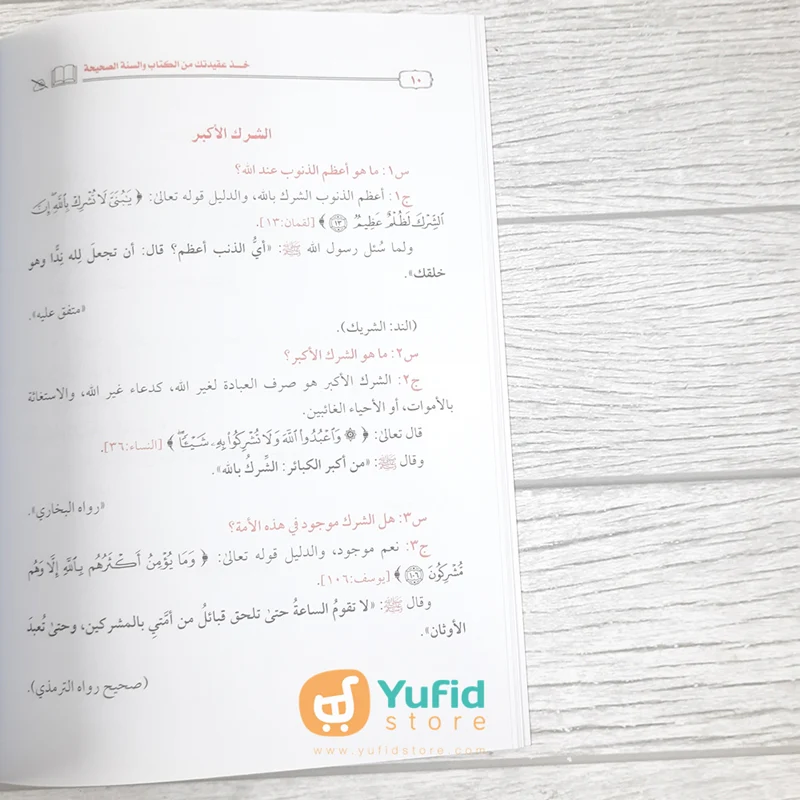 خذ عقيدتك من الكتاب والسنة الصحيحة
١٠
الشرك الأكبر
س١: ما هو أعظم الذنوب عند الله؟
ج١: أعظم الذنوب الشرك بالله، والدليل قوله تعالىٰ: ﴿ يَبُنَىَّ لَا تُشْرِكْ بِاللَّهِ إِنَّ
الشِّرْكَ لَظُلْمٌ عَظِيمٌ ١٣ ﴾ [لقمان:١٣].
ولما سُئل رسول الله ﷺ: «أيُّ الذنب أعظم؟ قال: أن تجعلَ لله نِدًّا وهو
خلقك».
«متفق عليه».
(الند: الشريك).
س٢: ما هو الشرك الأكبر؟
ج٢: الشرك الأكبر هو صرف العبادة لغير الله، كدعاء غير الله، والاستغاثة
بالأموات، أو الأحياء الغائبين.
قال تعالىٰ: ﴿ ۞ وَاعْبُدُوا اللَّهَ وَلَا تُشْرِكُوا بِهِ شَيْئًا ﴾ [النساء:٣٦].
وقال ﷺ: «من أكبر الكبائر: الشِّركُ بالله».
«رواه البخاري».
س٣: هل الشرك موجود في هذه الأمة؟
ج٣: نعم موجود، والدليل قوله تعالىٰ: ﴿ وَمَا يُؤْمِنُ أَكْثَرُهُم بِاللَّهِ إِلَّا وَهُم
مُّشْرِكُونَ ١٠٦ ﴾ [يوسف:١٠٦].
وقال ﷺ: «لا تقومُ الساعةُ حتىٰ تلحق قبائلُ من أمَّتي بالمشركين، وحتىٰ تُعبدَ
الأوثان».
(صحيح رواه الترمذي).
Yufid
store
www.yufidstore.com